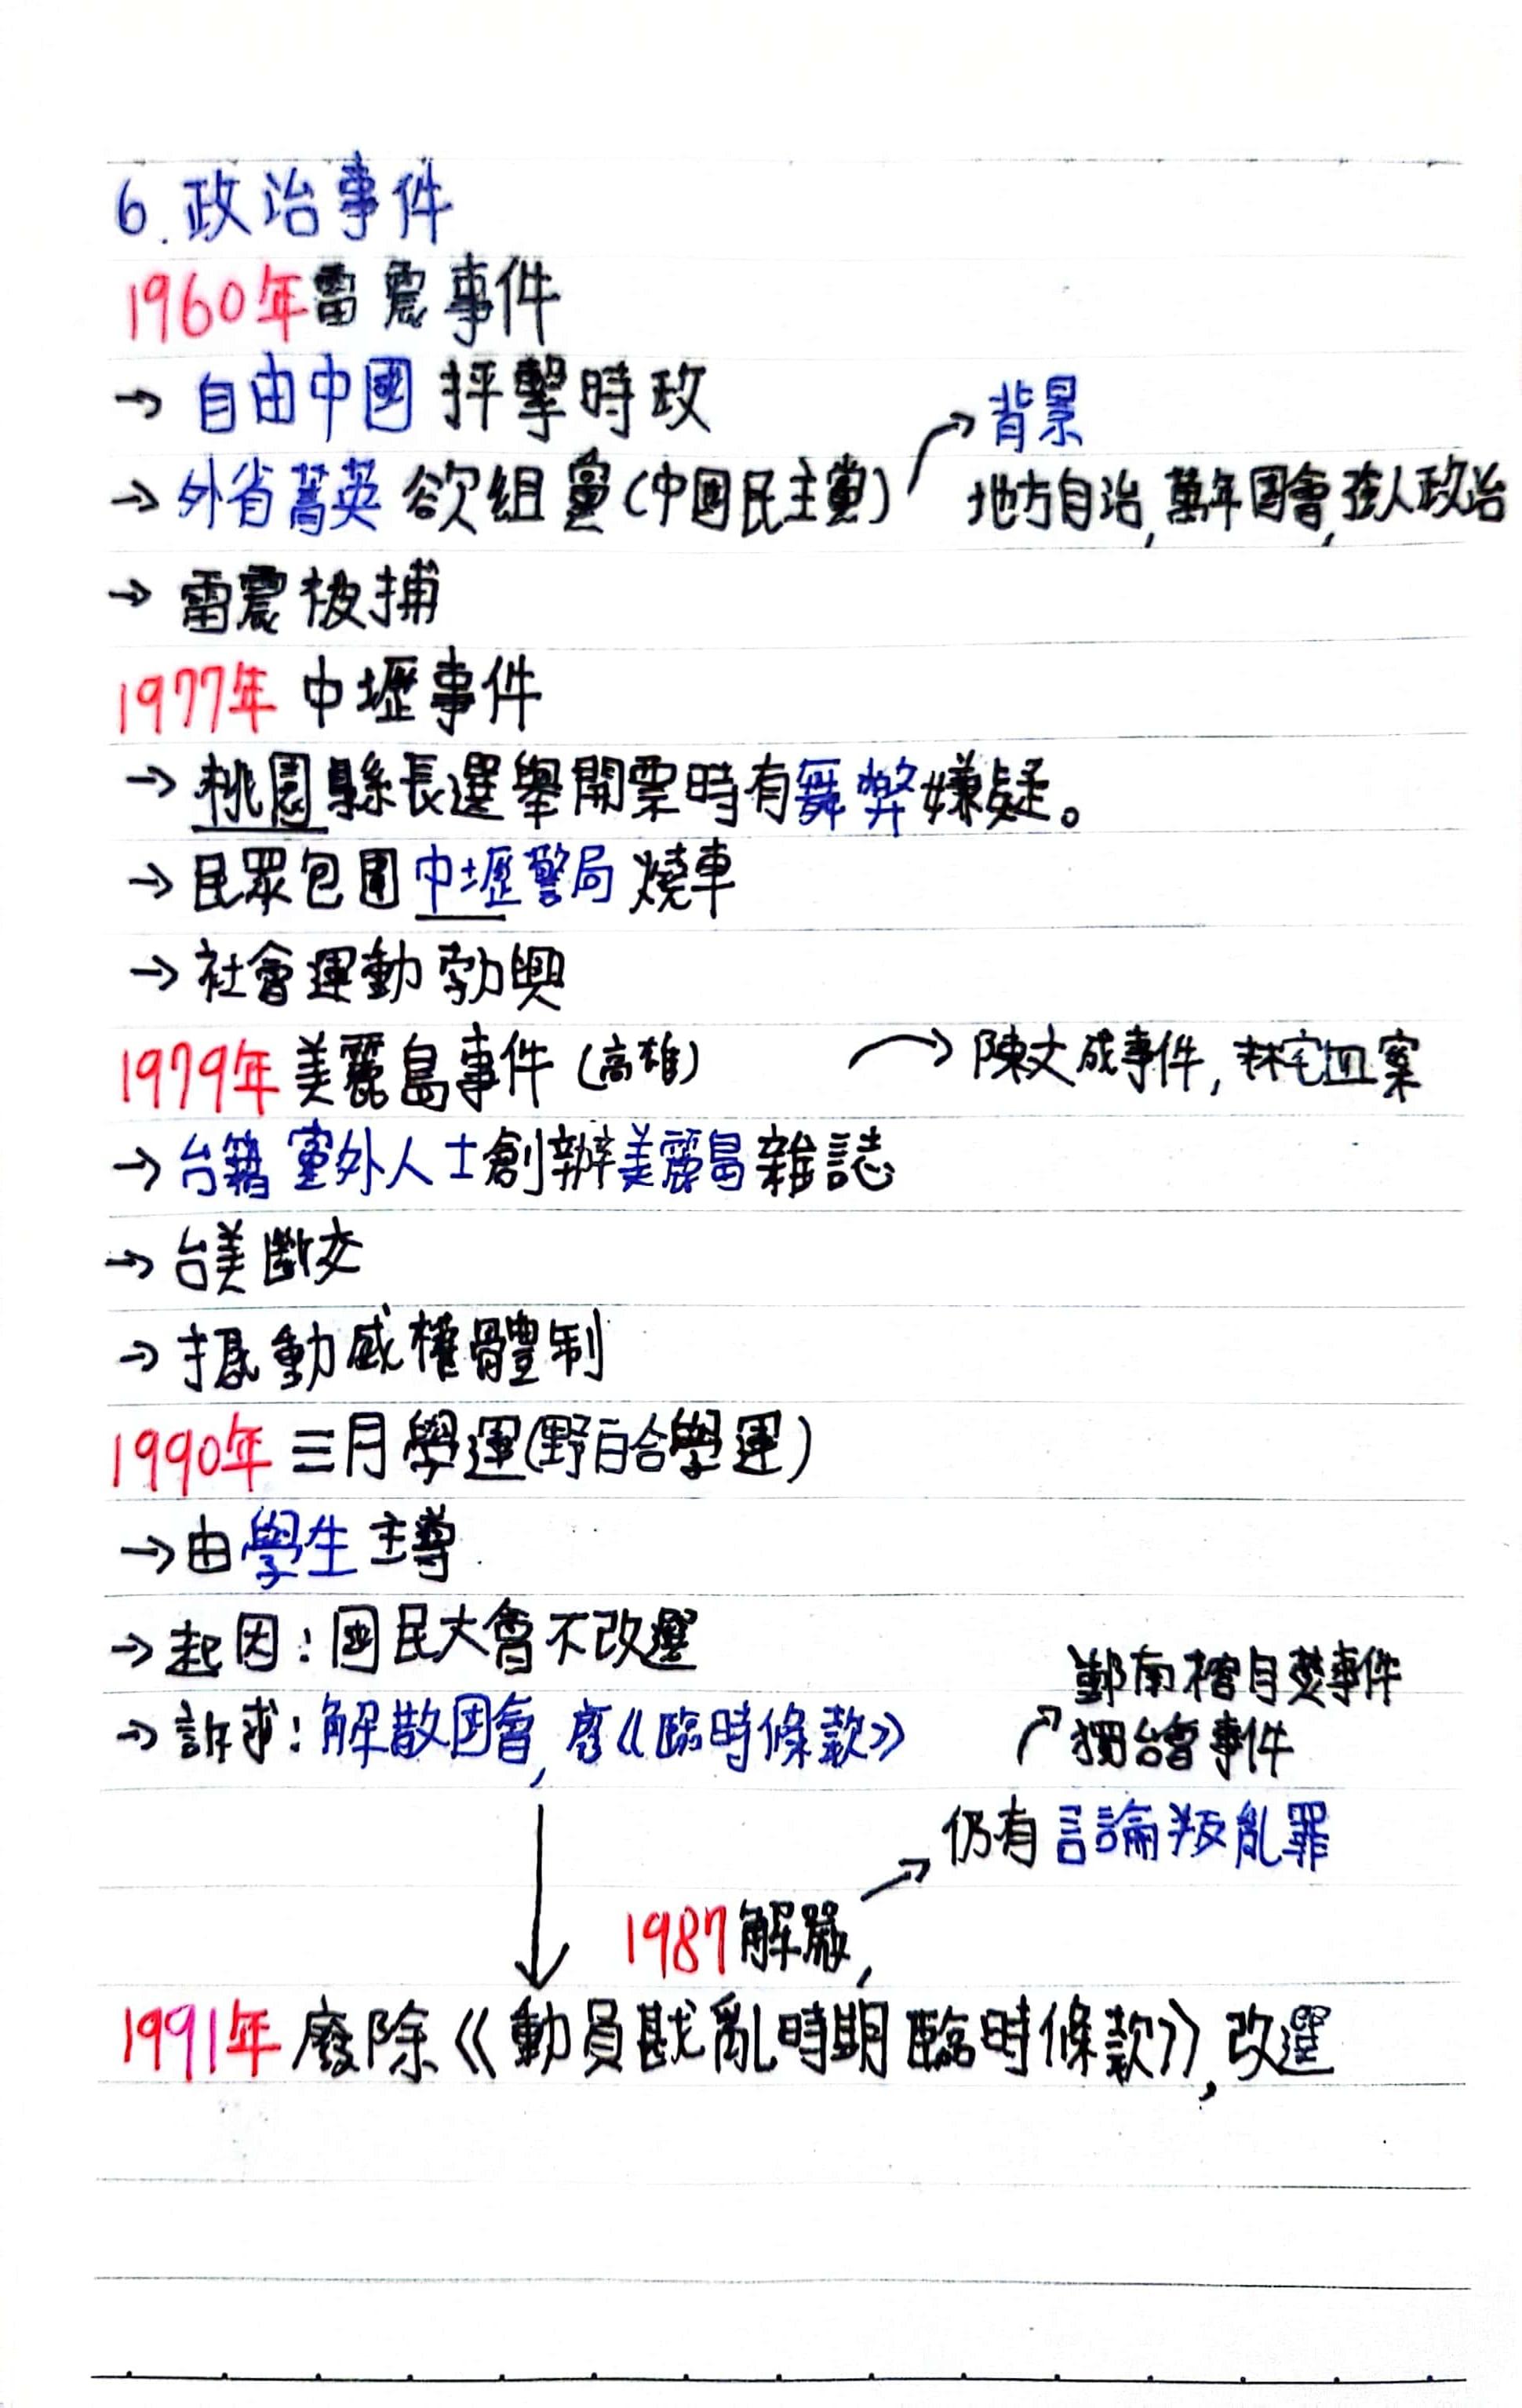 6.政治事件
1960年雷震事件
→ 自由中國 抨擊時政
→ 外省菁英 欲組黨(中國民主黨)
→ 背景
地方自治,萬年國會,強人政治
→ 雷震被捕
1977年 中壢事件
→ 桃園縣長選舉開票時有舞弊嫌疑。
→ 民眾包圍中壢警局 燒車
→ 社會運動勃興
1979年 美麗島事件(高雄) → 陳文成事件,林宅血案
→ 台籍 黨外人士創辦美麗島雜誌
→ 台美斷交
→ 撼動威權體制
1990年 三月學運(野百合學運)
→ 由學生主導
→ 起因:國民大會不改選
→ 訴求:解散國會,廢《臨時條款》
鄭南榕自焚事件
獨台會事件
仍有言論叛亂罪
1987解嚴,
1991年 廢除《動員戡亂時期臨時條款》,改選